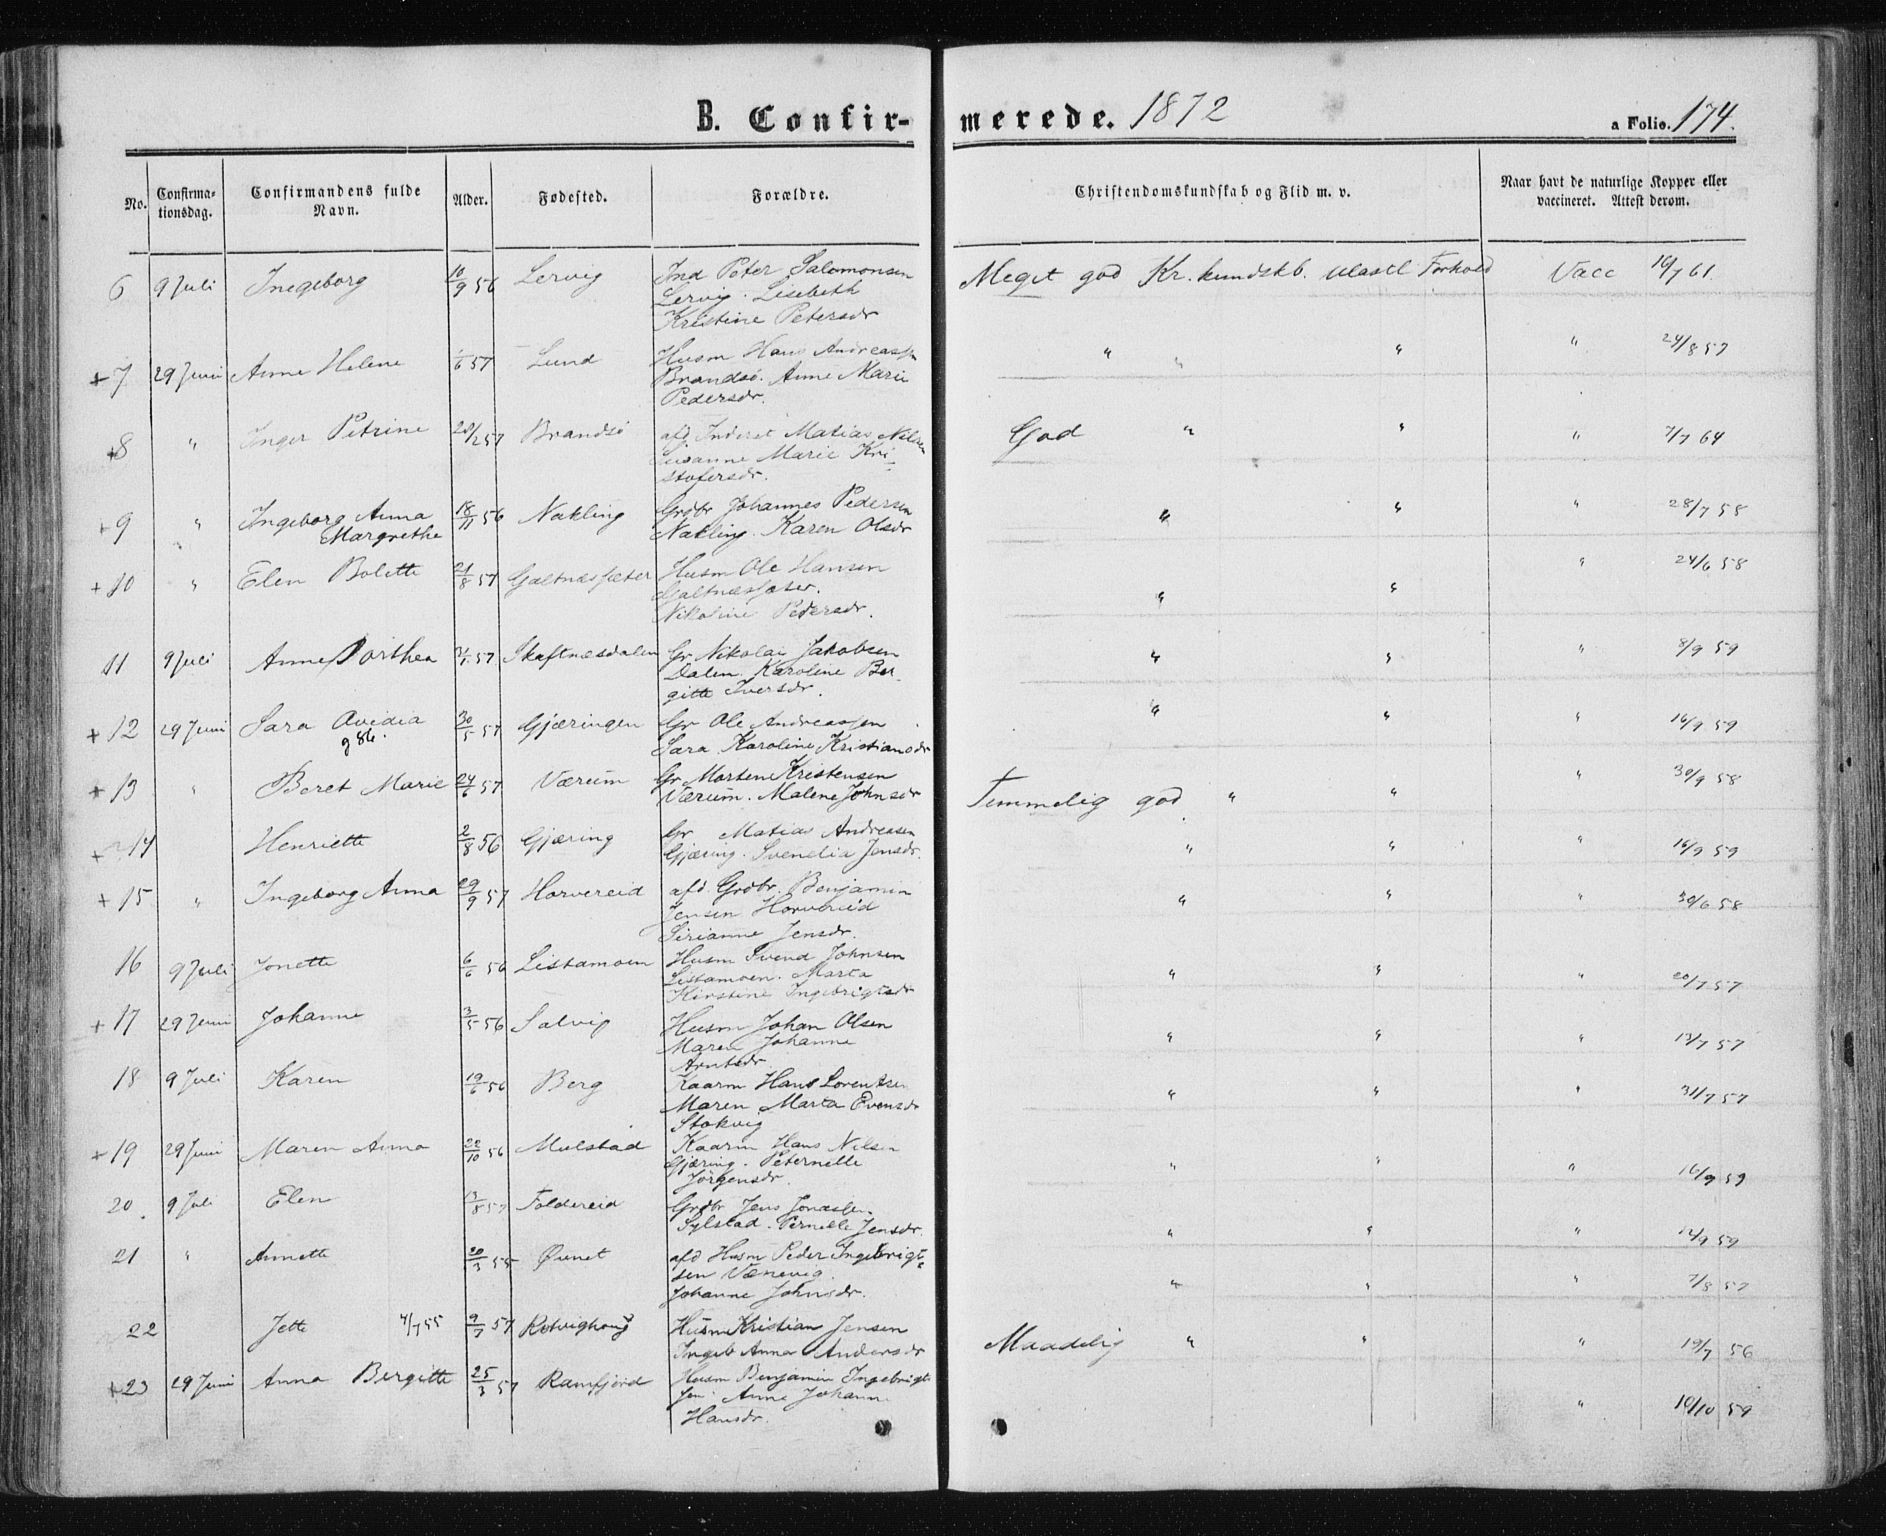 B. Confir- merede. 1872 a Folio. 174.
No. Confirma- tionsdag. Confirmandens fulde Navn. Alder. Fødested. Forældre. Christendomskundskab og Flid m. v. Naar havt de naturlige Kopper eller vaccineret. Attest derom.
6 9 Juli Ingeborg 10/9 56 Lervig Ind Peter Salomonsen Meget god Kr. kundskb. ulastl Forhold Vacc 19/7 61
Lervig. Lisebeth
Kristine Petersdr
+7 29 Juni Anne Helene /6 57 Lund Husm Hans Andreassen " " " " 24/8 57
Brandsö. Anne Marie
Pedersdr.
+8 " Inger Petrine 20/2 57 Brandsö afd. Inderst Matias Nilsen God " " " 7/7 64
Susanne Marie Kri-
stofersdr.
+9 " Ingeborg Anna 18/11 56 Nakling Grdbr Johannes Pedersen " " " 28/7 58
Margrethe Nakling. Karen Olsdr
+10 " Elen Bolette 21/8 57 Galtnæssæter Husm Ole Hansen " " " 24/6 58
Galtnæssæter.
Nikoline Pedersdr.
11 9 Juli Anne Dorthea 31/1 57 Skaftnæsdalen Gr Nikolai Jakobsen " " " 8/9 59
Dalen. Karoline Ber-
gitte Iversdr.
+12 29 Juni Sara Ovidia 30/5 57 Gjæringen Gr Ole Andreassen " " " 16/9 59
g 86. Sara Karoline Kristiansdr
+13 " Beret Marie 24/6 57 Værum Gr Morten Kristensen Temmelig god " " " 30/9 58
Værum. Malene Johnsdr
+14 Henriette 2/8 56 Gjæring Gr Matias Andreasen " " " 16/9 59
Gjæring. Svenelia Jensdr.
+15 " Ingeborg Anna 29/9 57 Horvereid afd. Grdbr. Benjamin " " " 30/6 58
Jensen Horvereid
Sirianne Jensdr.
16 9 Juli Jonette 6/6 56 Listamoen Husm Svend Johnsen " " " 20/7 57
Listamoen. Marta
Kirstine Ingebrigtsdr
+17 29 Juni Johanne 3/5 56 Salvig Husm Johan Olsen " " " 13/7 57
Maren Johanne
Arntsdr
18 9 Juli Karen 19/6 56 Berg Kaarm Hans Lorentsen " " " 31/7 57
Maren Marta Evensdr
Stokvig
+19 29 Juni Maren Anna 22/10 56 Mulstad Kaarm Hans Nilsen " " " 16/9 59
Gjæring. Peternelle
Jörgensdr.
20 9 Juli Elen 13/8 57 Foldereid Grdbr Jens Jonassen " " " 12/9 59
Sylstad. Pernelle Jensdr.
21 " Annette 20/3 55 Övnet afd Husm Peder Ingebrigt- " " " 7/8 57
sen Vænevig.
Johanne Johnsdr.
22 Jette 4/7 55 9/7 57 Rotvighoug Husm Kristian Jensen Maadelig " " " 19/7 56
Ingeb Anna Andersdr
+23 29 Juni Anna Bergitte 25/3 57 Ramfjord Husm Benjamin Ingebrigt- " 10/10 59
sen. Anne Johann
Hansdr.